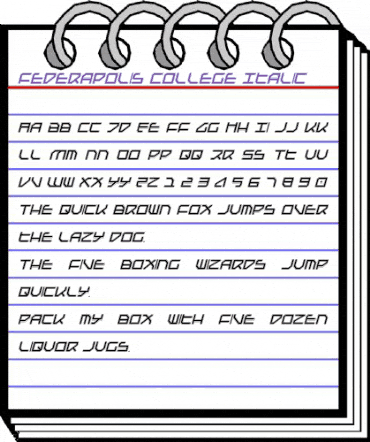 Federapolis College Italic
AA BB CC DD EE FF GG HH II JJ KK
LL MM NN OO PP QQ RR SS Tt UU
VV WW XX YY ZZ 1 2 3 4 5 6 7 8 9 0
THE QUICK BROWN FOX JUMPS OVER
tHE LAZY DOG.
THE FIVE BOXING WIZARDS JUMP
QUICKLY.
PACK MY BOX WITH FIVE DOZEN
LIQUOR JUGS.